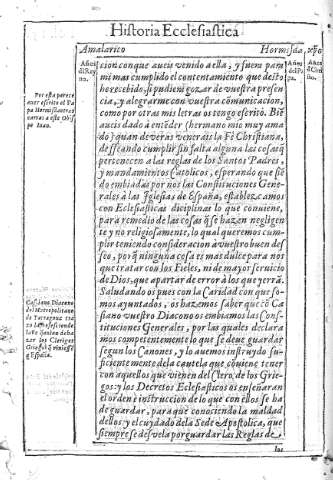 Historia Ecclesiastica
Amalarico
Hormisda,
cion conque aueis venido a ella; y fuera pa
mi mas cumplido el contentamiento que desto
he recebido, si pudieni gozar de vuestra presen
cia, y alegrarme con vuestra cōmunicacion,
como por otras mis letras os tengo escrito. Biē
aueis dado à entēder (hermano mio muy ama
do) quan de veras venerais la Fè Christiana,
desseando cumplir sin falta alguna las cosas q̄
pertenecen a las reglas de los Santos Padres,
y mandamientos Catolicos, esperando que siē
do embiadas por nos las Constituciones Gene-
rales à las Iglesias de España, establezcamos
con Eclesiasticas diciplinas lo que conuiene,
para remedio de las cosas q̄ se hazen negligen
te y no religiosamente, lo qual queremos cum-
plir teniendo consideracion à vuestro buen des
seo, porq̄ ninguna cosa es mas dulce para nos
que tratar con los Fieles, ni de mayor seruicio
de Dios, que apartar de error à los que yerrā.
Saludando os pues con la Caridad con que so-
mos ayuntados, os hazemos saber que cō Ca
siano vuestro Diacono os embiamos las Cons-
tituciones Generales, por las quales declara
mos competentemente lo que se deue guardar
segun los Canones, y lo auemos instruydo su-
ficientemente de la cautela que cōuiene tener
con aquellos que vienen del Clero, de los Grie-
gos: y los Decretos Eclesiasticos os enseñaran
el orden è instruccion de lo que con ellos se ha
de guardar, para que conosciendo la maldad
dellos y el cuydado de la Sede Apostolica, que
siempre se desvela por guardar las Reglas de
los
Por esta parece
auer escrito el Pa
pa Hormisda otras
cartas a este Obis
po Iuan.
Casiano Diacono
del Metropolitano
de Tarragona